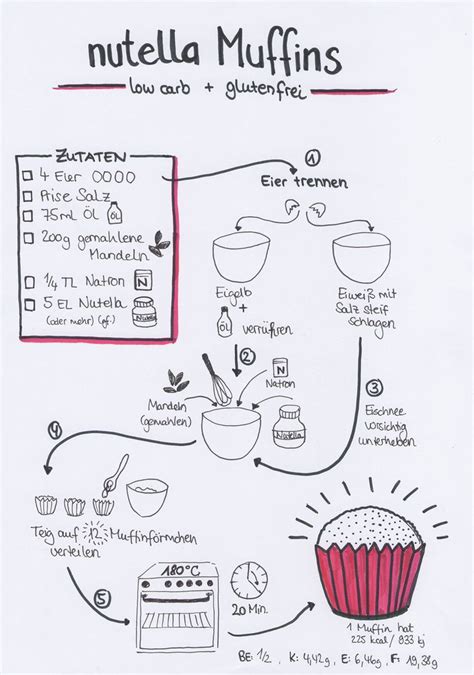 nutella Muffins
low carb + glutenfrei
ZUTATEN
4 Eier OOOO
Prise Salz
75ml Öl ÖL
200g gemahlene
Mandeln
1/4 TL Natron N
5 EL Nutella
(oder mehr) (gf.)
1
Eier trennen
Eigelb
+
ÖL verrühren
Eiweiß mit
Salz steif
schlagen
2
N
Natron
Mandeln
(gemahlen)
Nutella
3
Eischnee
vorsichtig
unterheben
4
Teig auf 12 Muffinförmchen
verteilen
5
180°C
20 Min.
1 Muffin hat
225 kcal / 933 kj
BE: 1/2, K: 4,42g, E: 6,46g, F: 19,38g